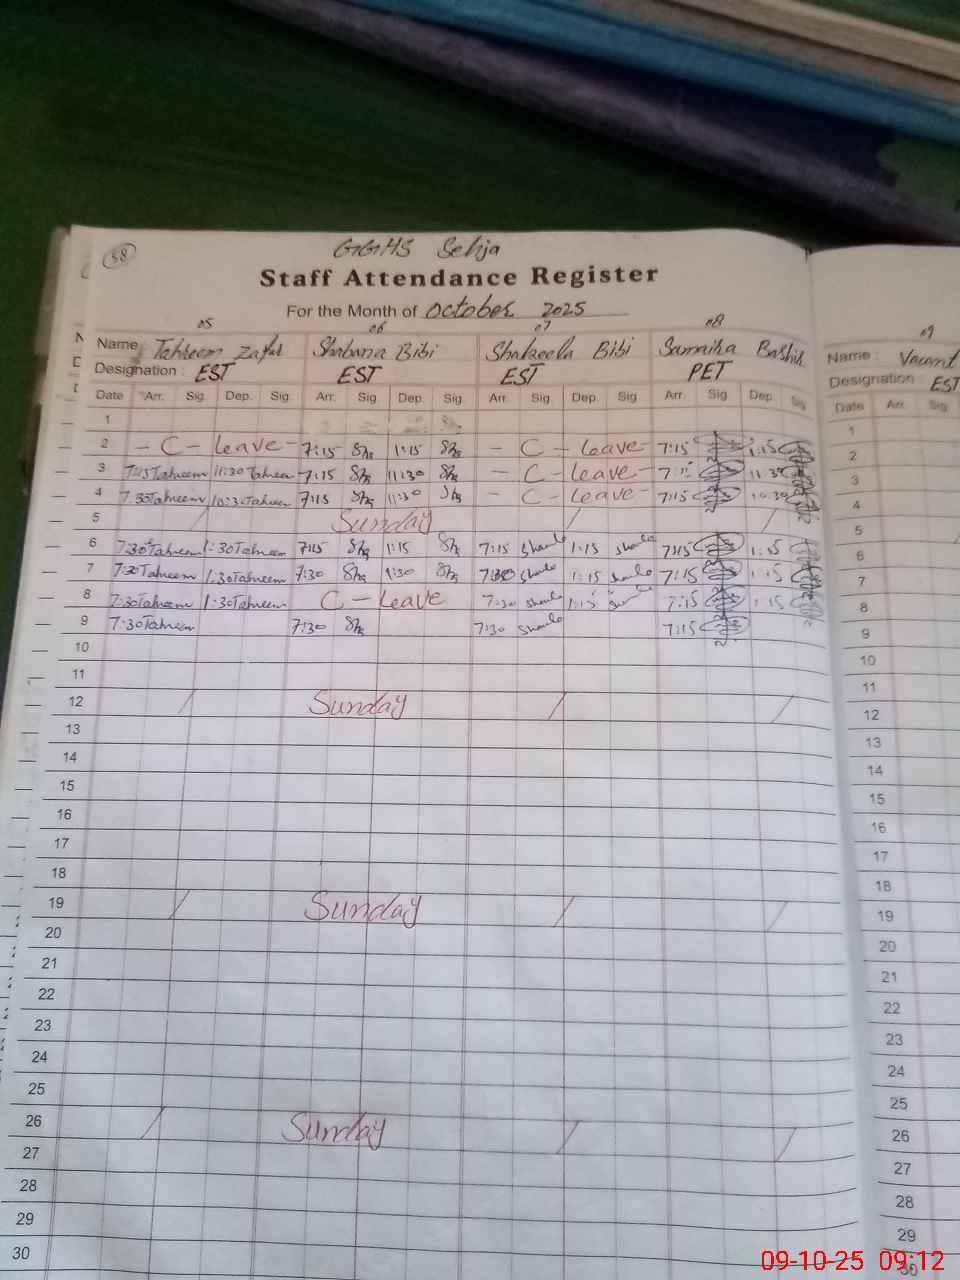 58
GGHS Sehja
Staff Attendance Register
For the Month of October 2025
05 06 07 08
Name Tahreem Zafar Shabana Bibi Shakeela Bibi Samaika Bashir
Designation : EST EST EST PET
Date Arr. Sig. Dep. Sig. Arr. Sig. Dep. Sig. Arr. Sig. Dep. Sig. Arr. Sig. Dep. Sig.
1
2 - C - Leave - 7:15 1:15 - C - Leave - 7:15 1:15
3 7:15 Tahreem 11:30 Tahreem 7:15 11:30 - C - Leave - 7:15 11:30
4 7:30 Tahreem 10:30 Tahreem 7:15 11:30 - C - Leave - 7:15 10:30
5 Sunday
6 7:30 Tahreem 1:30 Tahreem 7:15 1:15 7:15 1:15 7:15 1:15
7 7:30 Tahreem 1:30 Tahreem 7:30 1:30 7:30 1:15 7:15 1:15
8 7:30 Tahreem 1:30 Tahreem C - Leave 7:30 1:15 7:15 1:15
9 7:30 Tahreem 7:30 7:30 7:15
10
11
12 Sunday
13
14
15
16
17
18
19 Sunday
20
21
22
23
24
25
26 Sunday
27
28
29
30
09
Name Vacant
Designation EST
Date Arr. Sig.
1
2
3
4
5
6
7
8
9
10
11
12
13
14
15
16
17
18
19
20
21
22
23
24
25
26
27
28
29
30
09-10-25 09:12